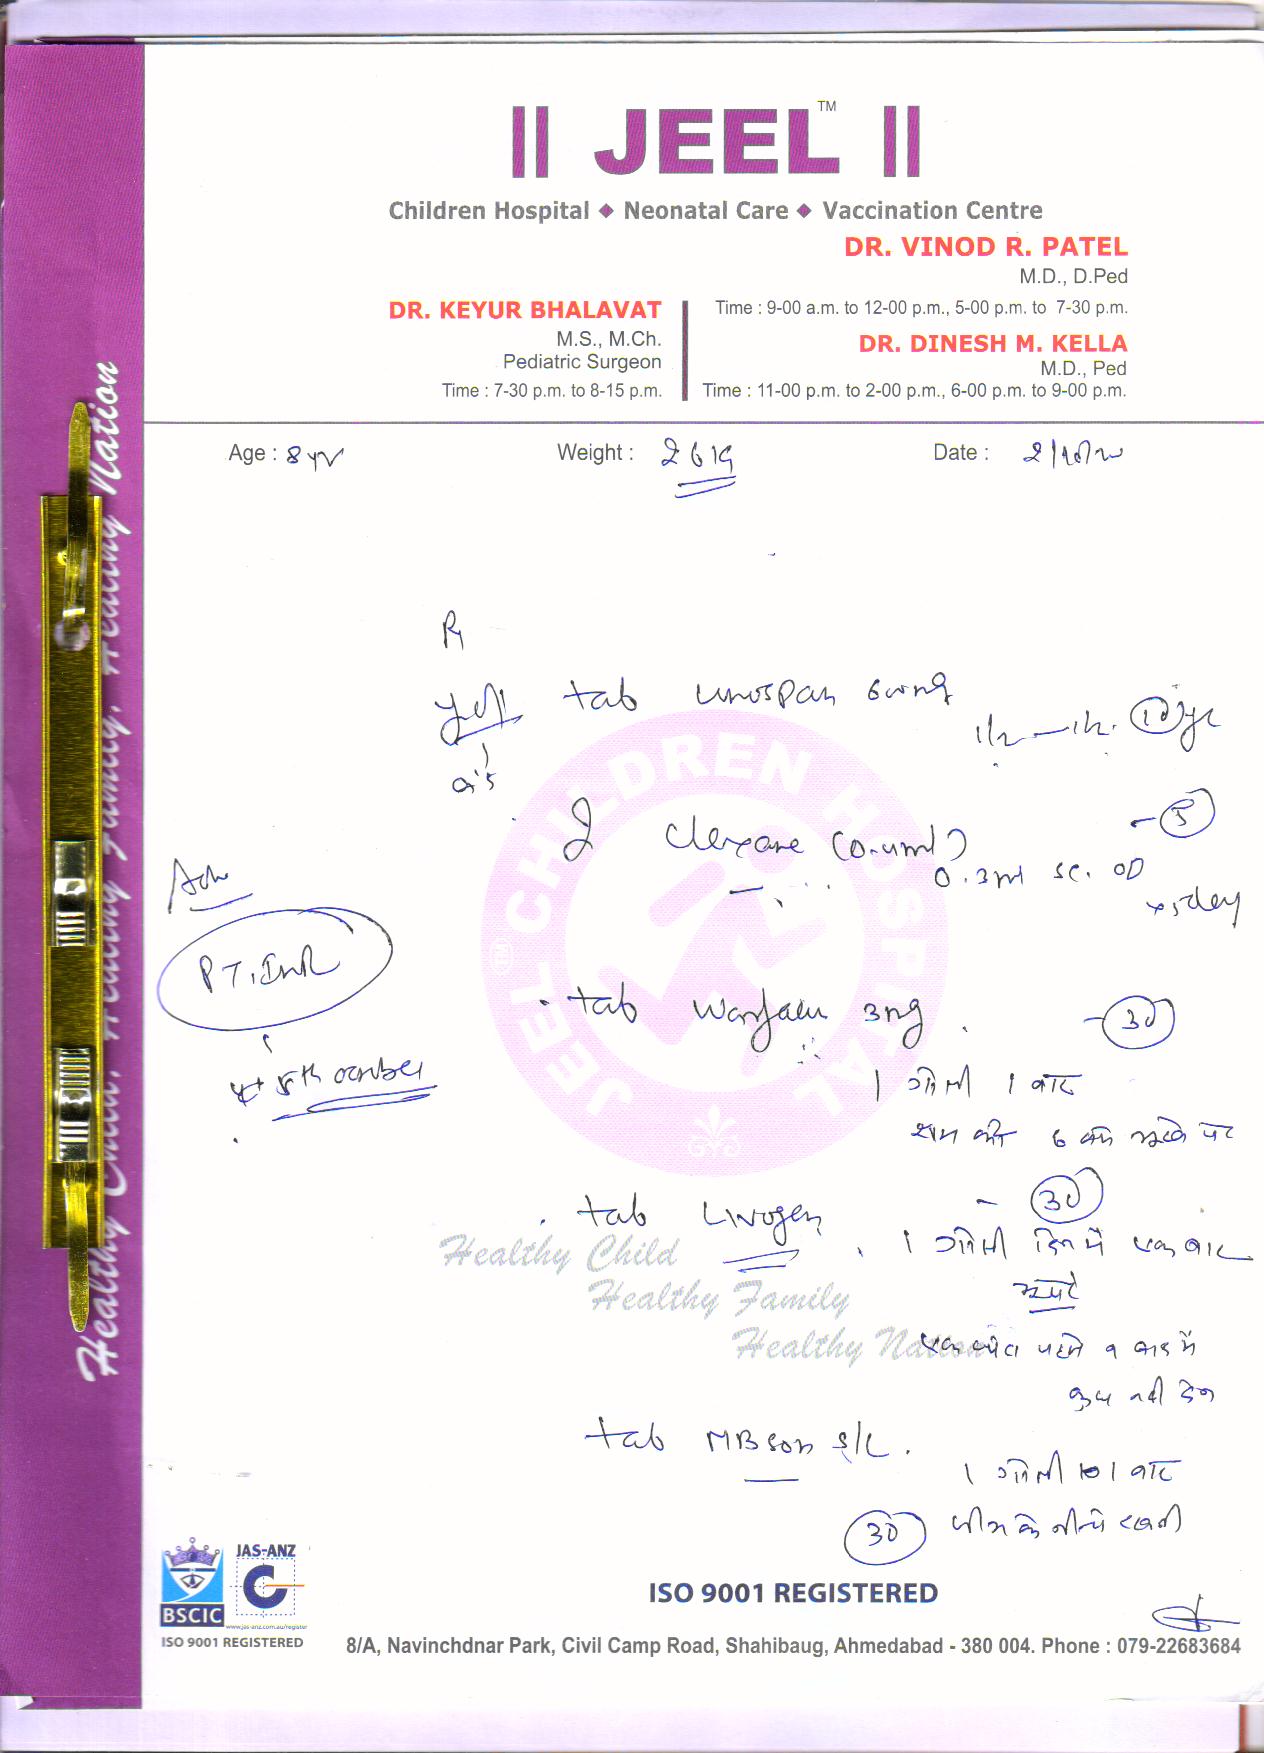 || JEEL™ ||
Children Hospital ◆ Neonatal Care ◆ Vaccination Centre
DR. VINOD R. PATEL
M.D., D.Ped
Time : 9-00 a.m. to 12-00 p.m., 5-00 p.m. to 7-30 p.m.
DR. KEYUR BHALAVAT
M.S., M.Ch.
Pediatric Surgeon
Time : 7-30 p.m. to 8-15 p.m.
DR. DINESH M. KELLA
M.D., Ped
Time : 11-00 p.m. to 2-00 p.m., 6-00 p.m. to 9-00 p.m.
Age : 8 yr
Weight : 26 kg
Date :
Healthy Child, Healthy Family, Healthy Nation
JEEL CHILDREN HOSPITAL
tab
1/2 — 1/2. 10
Clexane (0.4ml) - 5
0.3ml SC. OD
x 5 day
Adv
PT, INR
8th october
tab Warfarin 3mg - 30
1 गोली 1 बार
शाम को 6 बजे
tab Livogen - 30
1 गोली दिन में एक बार
Healthy Child
Healthy Family
Healthy Nation
कुछ नही देना
tab MBson S/L.
1 गोली 1 बार
जीभ के नीचे रखनी
30
JAS-ANZ
BSCIC
www.jas-anz.com.au/register
ISO 9001 REGISTERED
ISO 9001 REGISTERED
8/A, Navinchdnar Park, Civil Camp Road, Shahibaug, Ahmedabad - 380 004. Phone : 079-22683684